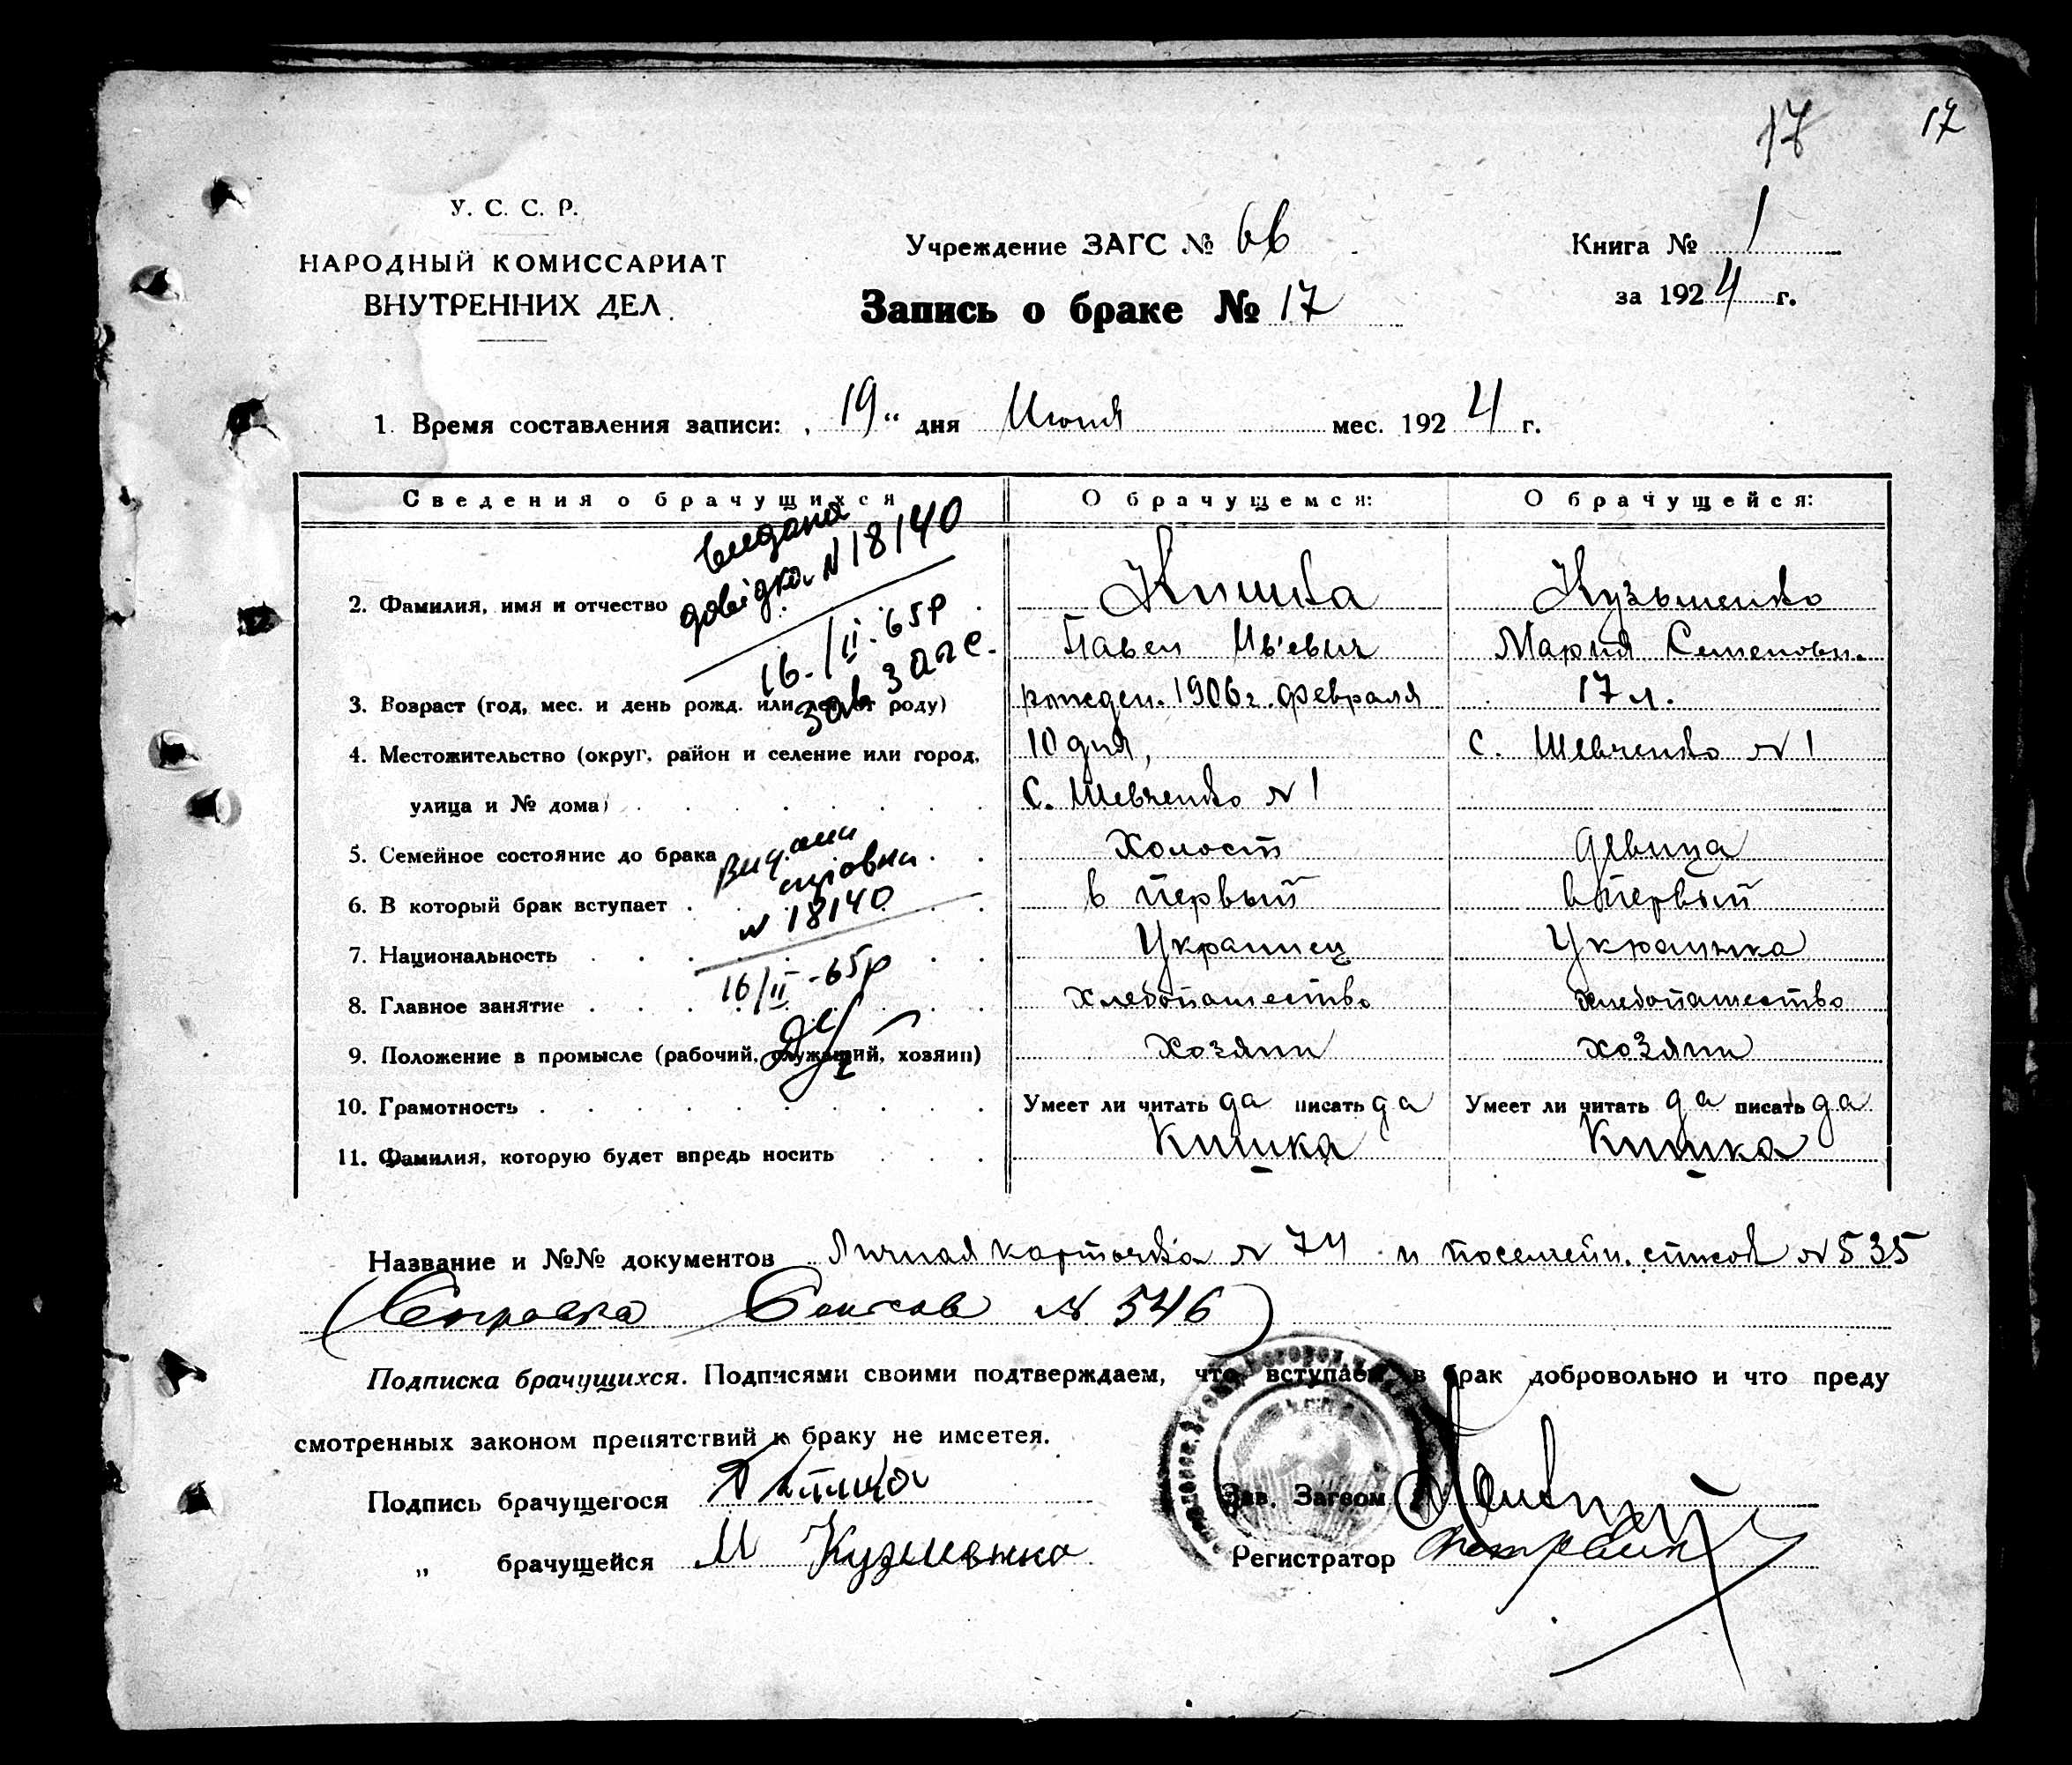 17 17
У. С. С. Р.
НАРОДНЫЙ КОМИССАРИАТ
ВНУТРЕННИХ ДЕЛ.
Учреждение ЗАГС № 66
Запись о браке № 17
Книга № 1
за 1924 г.
1. Время составления записи: „19“ дня Июня мес. 1924 г.
Сведения о брачущихся О брачущемся: О брачущейся:
видана
довідка N 18140
16/II-65р
зав загс.
2. Фамилия, имя и отчество Кишка Кузьменко
Павел Ив'евич Мария Семеновн.
3. Возраст (год, мес. и день рожд. или лет от роду) рожден. 1906 г. февраля 17 л.
4. Местожительство (округ, район и селение или город, 10 дня, С. Шевченко N 1
улица и № дома) С. Шевченко N 1
5. Семейное состояние до брака Холост Девица
Видана
N 18140
16/II-65р
6. В который брак вступает в первый в первый
7. Национальность Украинец Украинка
8. Главное занятие Хлебопашество Хлебопашество
9. Положение в промысле (рабочий, служащий, хозяин) Хозяин Хозяин
10. Грамотность Умеет ли читать да писать да Умеет ли читать да писать да
11. Фамилия, которую будет впредь носить Кишка Кишка
Название и №№ документов Личная карточка N 74 и посемейн. список N 535
(Справка N 546)
Подписка брачущихся. Подписями своими подтверждаем, что вступаем в брак добровольно и что преду
смотренных законом препятствий к браку не имеется.
Подпись брачущегося
„ брачущейся М Кузменко
Зав. Загсом
Регистратор